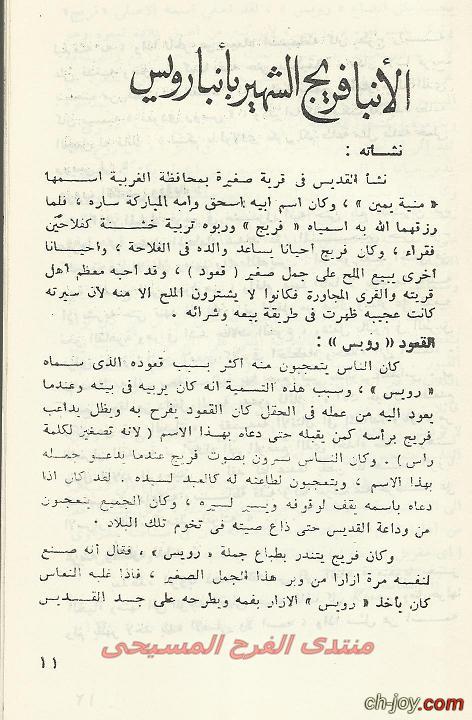 الأنبا فريج الشهير بأنبا رويس
نشاته :
نشأ القديس فى قرية صغيرة بمحافظة الغربية اسمها
« منية يمين » ، وكان اسم ابيه اسحق وامه المباركة ساره ، فلما
رزقهما الله به اسمياه « فريج » وربوه تربية خشنة كفلاحين
فقراء ، وكان فريج احيانا يساعد والده فى الفلاحة ، واحيانا
اخرى يبيع الملح على جمل صغير ( قعود ) ، وقد احبه معظم أهل
قريته والقرى المجاورة فكانوا لا يشترون الملح الا منه لان سيرته
كانت عجيبه ظهرت فى طريقة بيعه وشرائه .
القعود « رويس » :
كان الناس يتعجبون منه أكثر بسبب قعوده الذى سماه
« رويس » ، وسبب هذه التسمية انه كان يربيه فى بيته وعندما
يعود اليه من عمله فى الحقل كان القعود يفرح به ويظل يداعب
فريج برأسه كمن يقبله حتى دعاه بهذا الاسم ( لانه تصغير لكلمة
راس ) . وكان الناس يسرون بصوت فريج عندما يدعو جمله
بهذا الاسم ، ويتعجبون لطاعته له كالعبد لسيده . لقد كان اذا
دعاه باسمه يقف لوقوفه ويسير لسيره ، وكان الجميع يتعجبون
من وداعة القديس حتى ذاع صيته فى تخوم تلك البلاد .
وكان فريج يتندر بطباع جملة « رويس » ، فقال أنه صنع
لنفسه مرة ازارا من وبر هذا الجمل الصغير ، فاذا غلبه النعاس
كان يأخذ « رويس » الازار بفمه ويطرحه على جسد القديس
منتدى الفرح المسيحى
١١
ch-joy.com